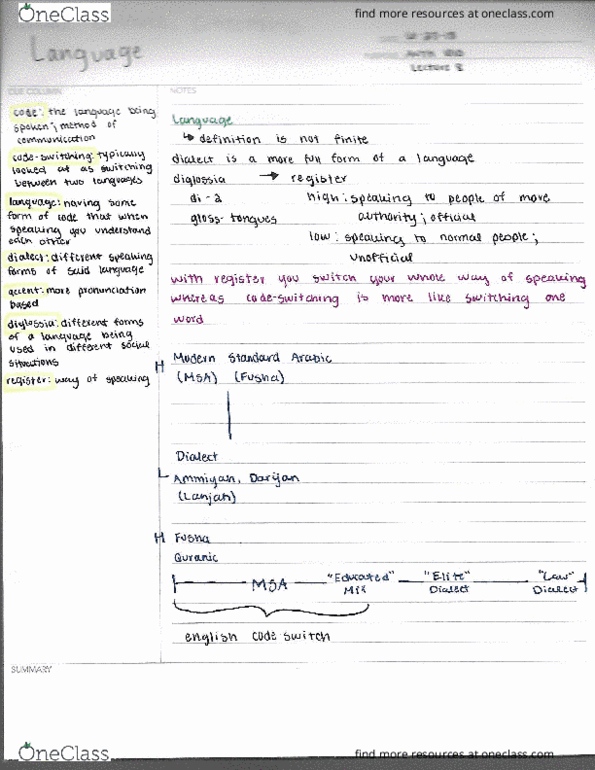 OneClass
find more resources at oneclass.com
Language
Lecture 8
CUE COLUMN
NOTES
code: the language being
spoken; method of
communication
code-switching: typically
looked at as switching
between two languages
language: having some
form of code that when
speaking you understand
each other
dialect: different speaking
forms of said language
accent: more pronunciation
based
diglossia: different forms
of a language being
used in different social
situations
register: way of speaking
Language
↳ definition is not finite
dialect is a more full form of a language
diglossia → register
di-2 high: speaking to people of more
gloss-tongues authority; official
low: speakings to normal people;
unofficial
with register you switch your whole way of speaking
whereas code-switching is more like switching one
word
H Modern Standard Arabic
(MSA) (Fusha)
Dialect
L Ammiyah, Darijah
(Lahjah)
H Fusha
Quranic
MSA "Educated" "Elite" "Low"
Mix Dialect Dialect
english code switch
SUMMARY
OneClass
find more resources at oneclass.com